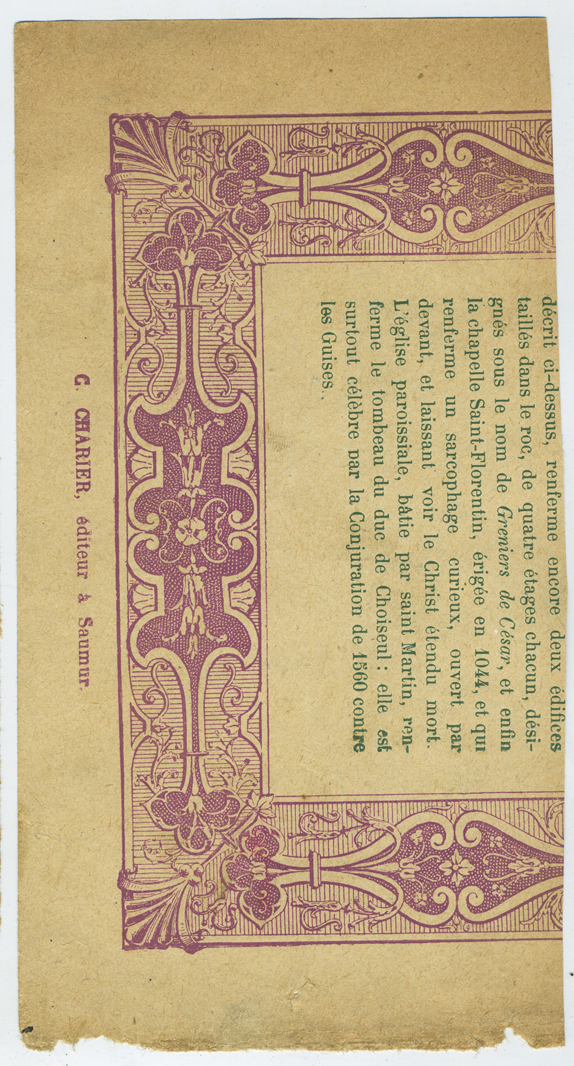 décrit ci-dessus, renferme encore deux édifices
taillés dans le roc, de quatre étages chacun, dési-
gnés sous le nom de Greniers de César, et enfin
la chapelle Saint-Florentin, érigée en 1044, et qui
renferme un sarcophage curieux, ouvert par
devant, et laissant voir le Christ étendu mort.
L'église paroissiale, bâtie par saint Martin, ren-
ferme le tombeau du duc de Choiseul : elle est
surtout célèbre par la Conjuration de 1560 contre
les Guises..
C. CHARIER, éditeur à Saumur.